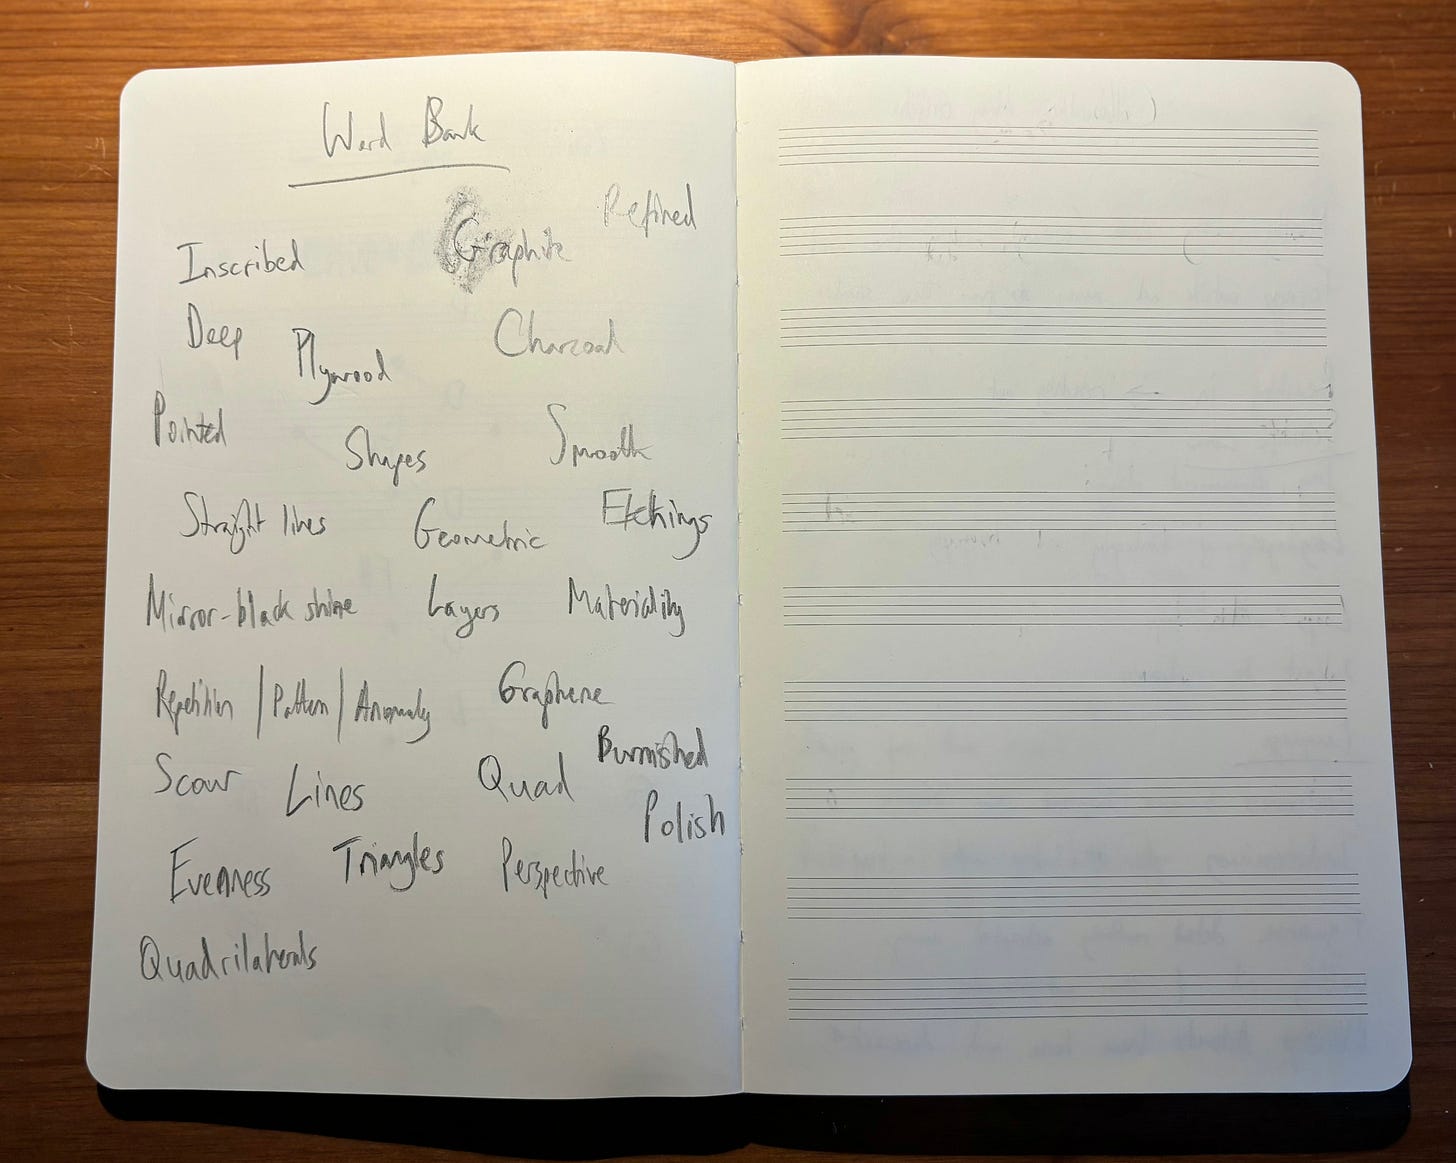 Word Bank
Refined
Inscribed Graphite
Deep Plywood Charcoal
Pointed Shapes Smooth
Straight lines Geometric Etchings
Mirror-black shine Layers Materiality
Repetition | Pattern | Anomaly Graphene
Burnished
Scour Lines Quad
Polish
Evenness Triangles Perspective
Quadrilaterals